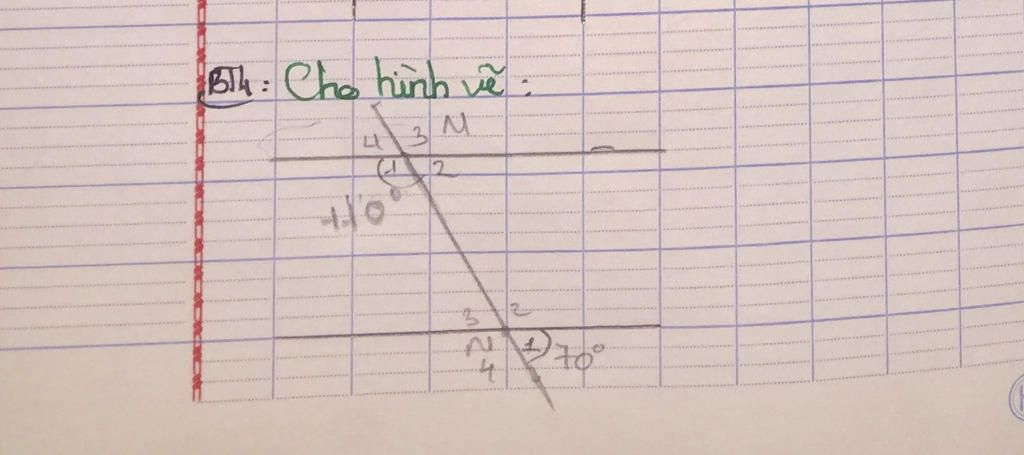 BT4: Cho hình vẽ:
4 3 M
1 2
110°
3 2
N 1 70°
4